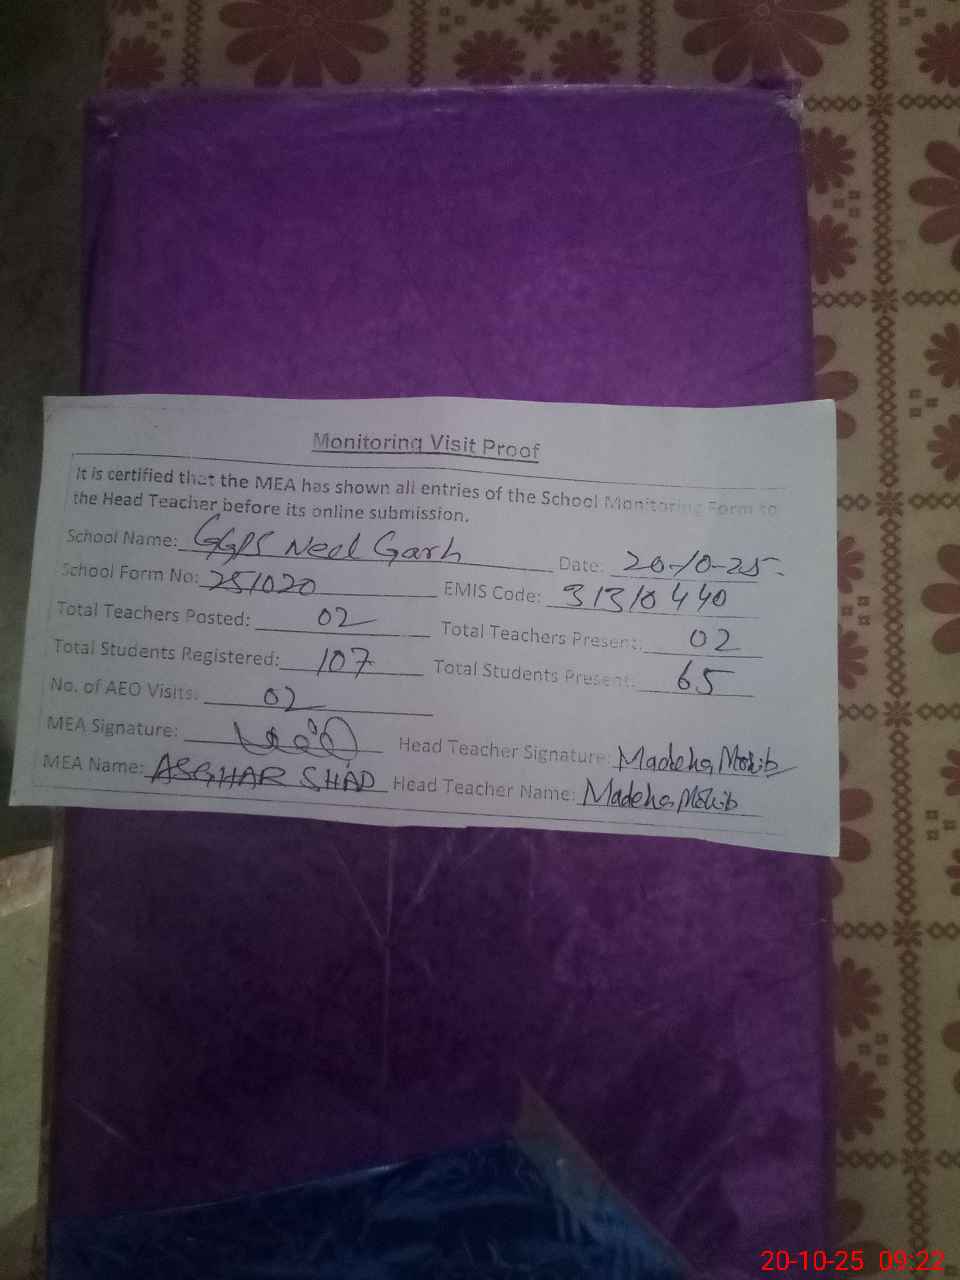 Monitoring Visit Proof
It is certified that the MEA has shown all entries of the School Monitoring Form to
the Head Teacher before its online submission.
School Name: GGPS Neel Garh Date: 20-10-25
School Form No: 251020 EMIS Code: 31310440
Total Teachers Posted: 02 Total Teachers Present: 02
Total Students Registered: 107 Total Students Present: 65
No. of AEO Visits: 02
MEA Signature: Head Teacher Signature: Madeha Mohib
MEA Name: ASGHAR SHAD Head Teacher Name: Madeha Mohib
20-10-25 09:22